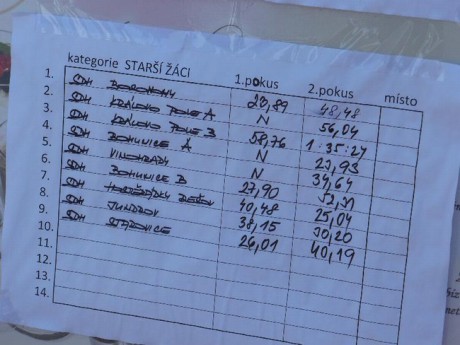 kategorie STARŠÍ ŽÁCI 1.pokus 2.pokus místo
1. SDH 29,89 48,48
2. SDH KRÁLOVO POLE A N 56,04
3. SDH KRÁLOVO POLE B 58,76 1:35:27
4. SDH BOHUNICE A N 27,93
5. SDH VINOHRADY N 34,64
6. SDH BOHUNICE B 27,90 52,31
7. SDH HOSTĚRÁDKY REŠOV 40,48 25,04
8. SDH JUNDROV 38,15 30,20
9. SDH STAROVICE 26,01 40,19
10.
11.
12.
13.
14.